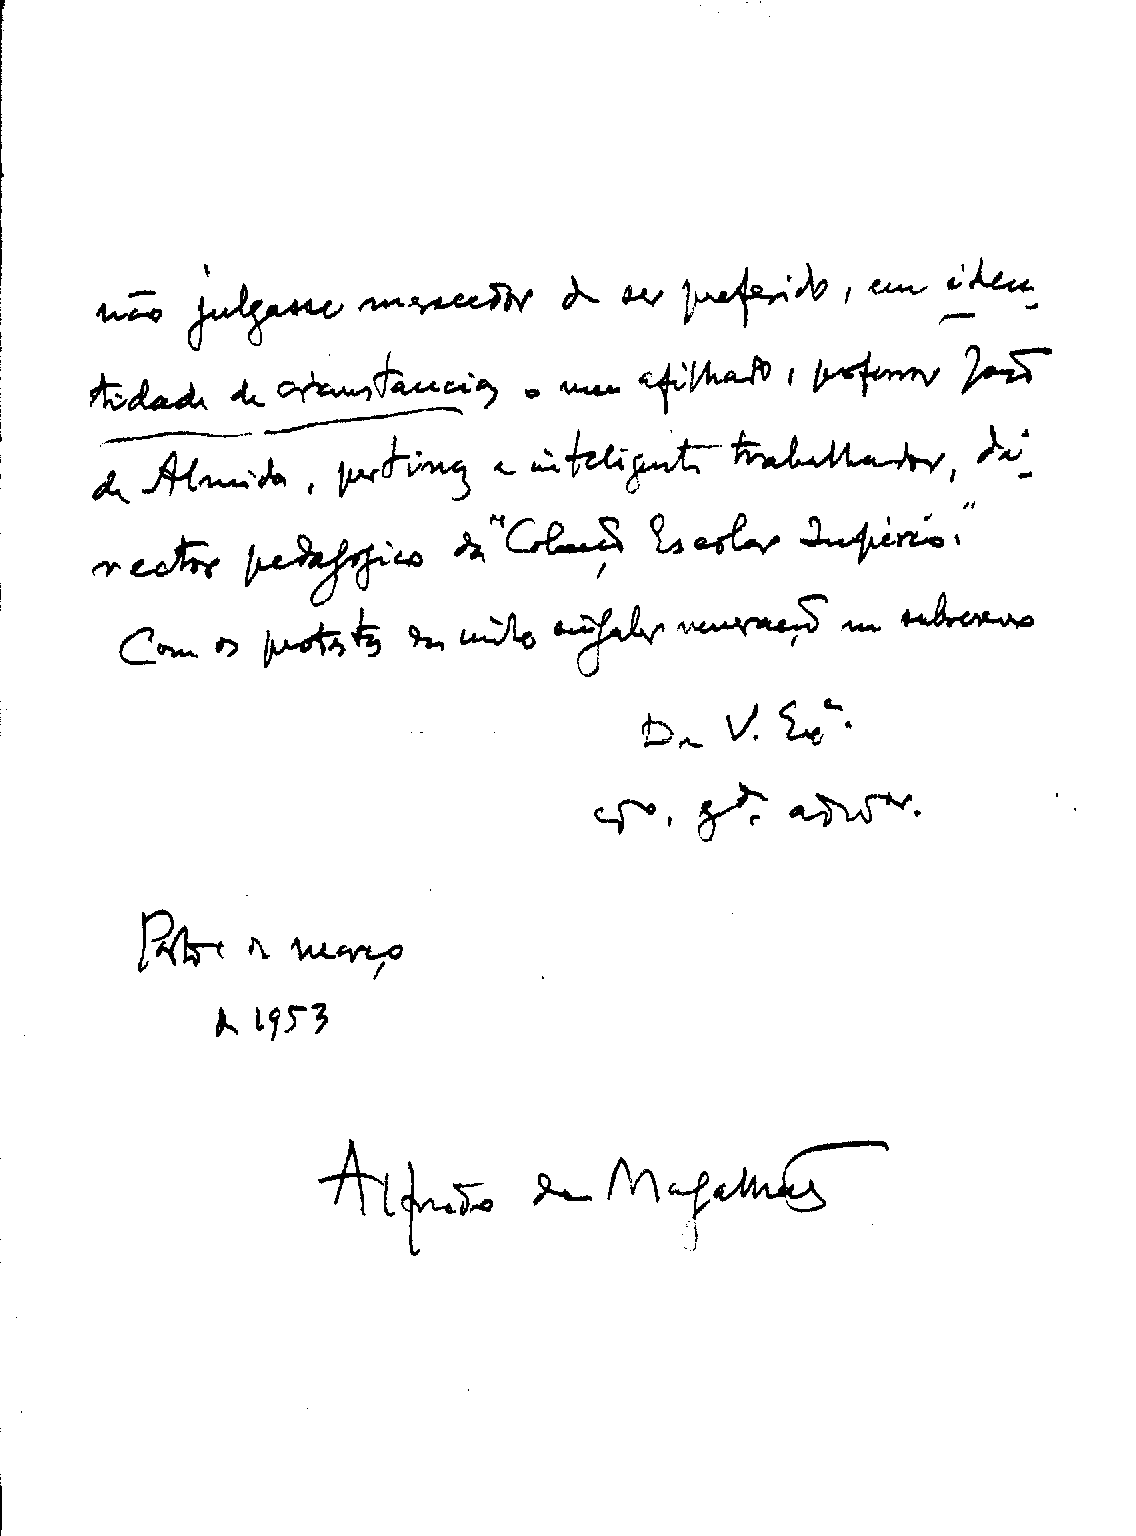 não julgasse merecedor de ser preferido, em iden-
tidade de circunstancias o meu afilhado, professor João
de Almeida, pertinaz e inteligente trabalhador, di-
rector pedagógico da "Colecção Escolar Império."
Com os protestos da mto singular veneração me subscrevo
De V. Exª.
cdo. gto. ador.
Porto e março
de 1953
Alfredo de Magalhães